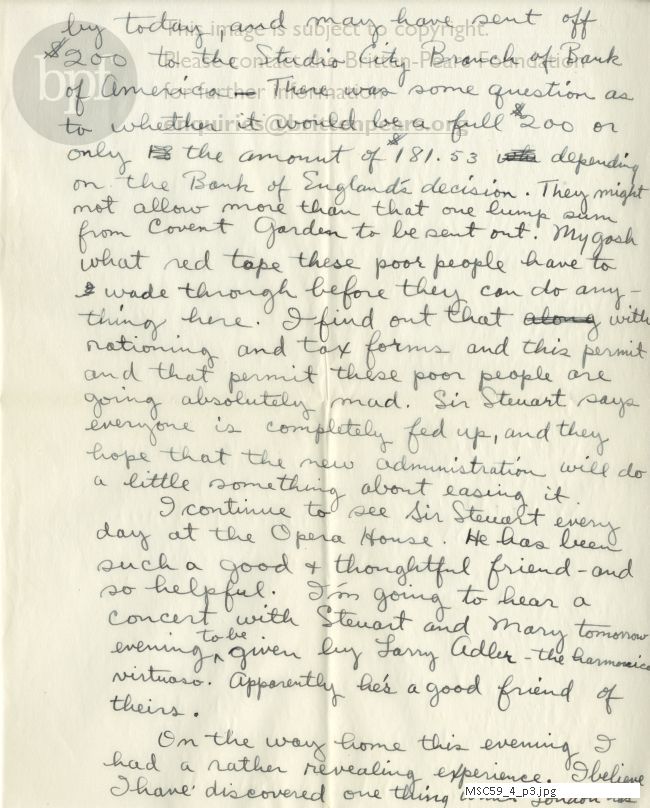 by today, and may have sent off
$200 to the Studio City Branch of Bank
of America. There was some question as
to whether it would be a full $200 or
only the amount of $181.53 depending
on the Bank of England's decision. They might
not allow more than that one lump sum
from Covent Garden to be sent out. My gosh
what red tape these poor people have to
wade through before they can do any-
thing here. I find out that along with
rationing and tax forms and this permit
and that permit these poor people are
going absolutely mad. Sir Steuart says
everyone is completely fed up, and they
hope that the new administration will do
a little something about easing it.
I continue to see Sir Steuart every
day at the Opera House. He has been
such a good & thoughtful friend - and
so helpful. I'm going to hear a
concert with Steuart and Mary tomorrow
evening, to be given by Larry Adler - the harmonica
virtuoso. Apparently he's a good friend of
theirs.
On the way home this evening I
had a rather revealing experience. I believe
I have discovered one thing London
This image is subject to copyright.
Please contact the Britten-Pears Foundation
for further information
enquiries@brittenpears.org
bpf
MSC59_4_p3.jpg